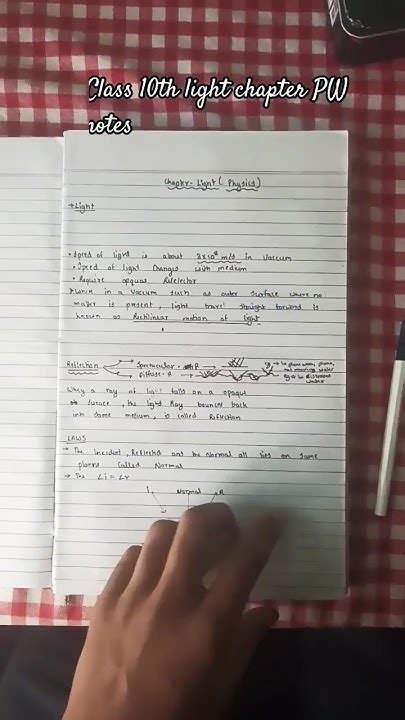 Class 10th light chapter PW
notes
Chapter- Light ( Physics )
→ Light
• Speed of light is about 3x10⁸ m/s in Vaccum
• Speed of light changes with medium
• Require opaque Reflector
When in a Vaccum such as outer surface where no
matter is present, light travel straight forward is
known as Rectilinear motion of light
Reflection
Diffuse - R
When a ray of light falls on a opaque
surface, the light Ray bounces back
into same medium, is called Reflection
LAWS
→ The incident, Reflected and the Normal all lies on same
Called Normal
→ The Li = Lr
I Normal R